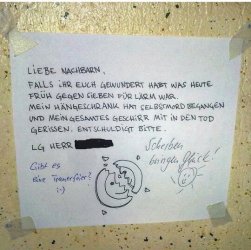 LIEBE NACHBARN,
FALLS IHR EUCH GEWUNDERT HABT WAS HEUTE
FRÜH GEGEN SIEBEN FÜR LÄRM WAR.
MEIN HÄNGESCHRANK HAT SELBSTMORD BEGANGEN
UND MEIN GESAMTES GESCHIRR MIT IN DEN TOD
GERISSEN. ENTSCHULDIGT BITTE.
LG HERR
Gibt es
eine Trauerfeier?
:-)
Scherben
bringen Glück!